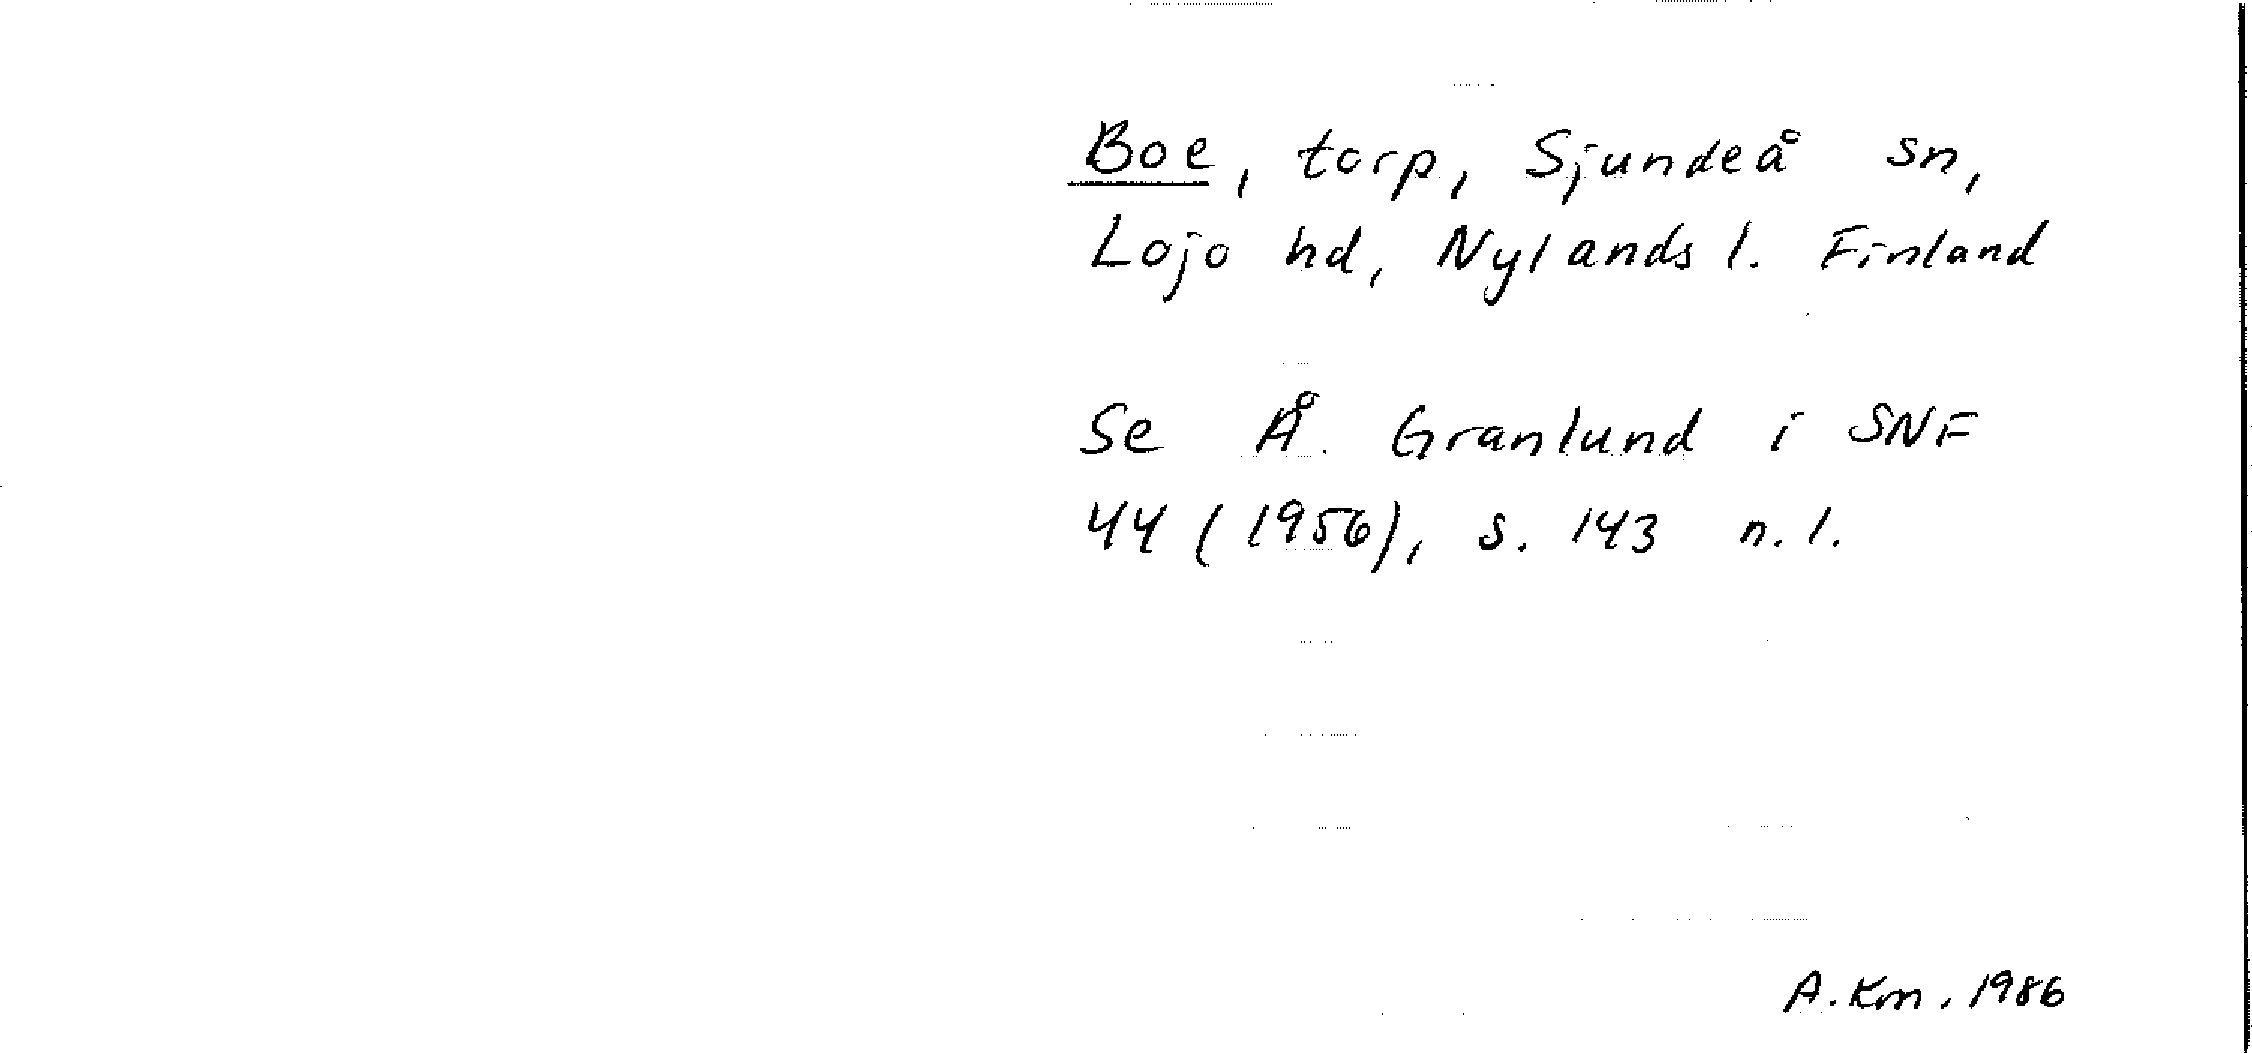 Boe, torp, Sjundeå sn,
Lojo hd, Nylands l. Finland
Se Å. Granlund i SNF
44 (1956), s. 143 n. l.
A. Km. 1986